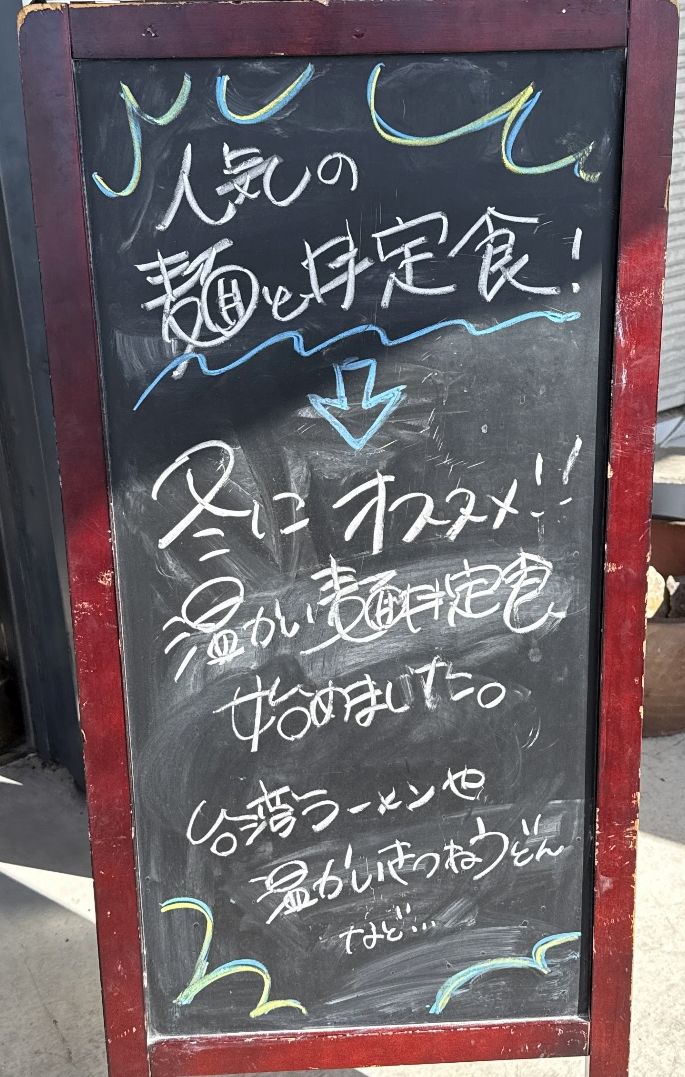 人気の
麺と丼定食!
冬にオススメ!!
温かい麺丼定食
始めました。
台湾ラーメンや
温かいきつねうどん
など…